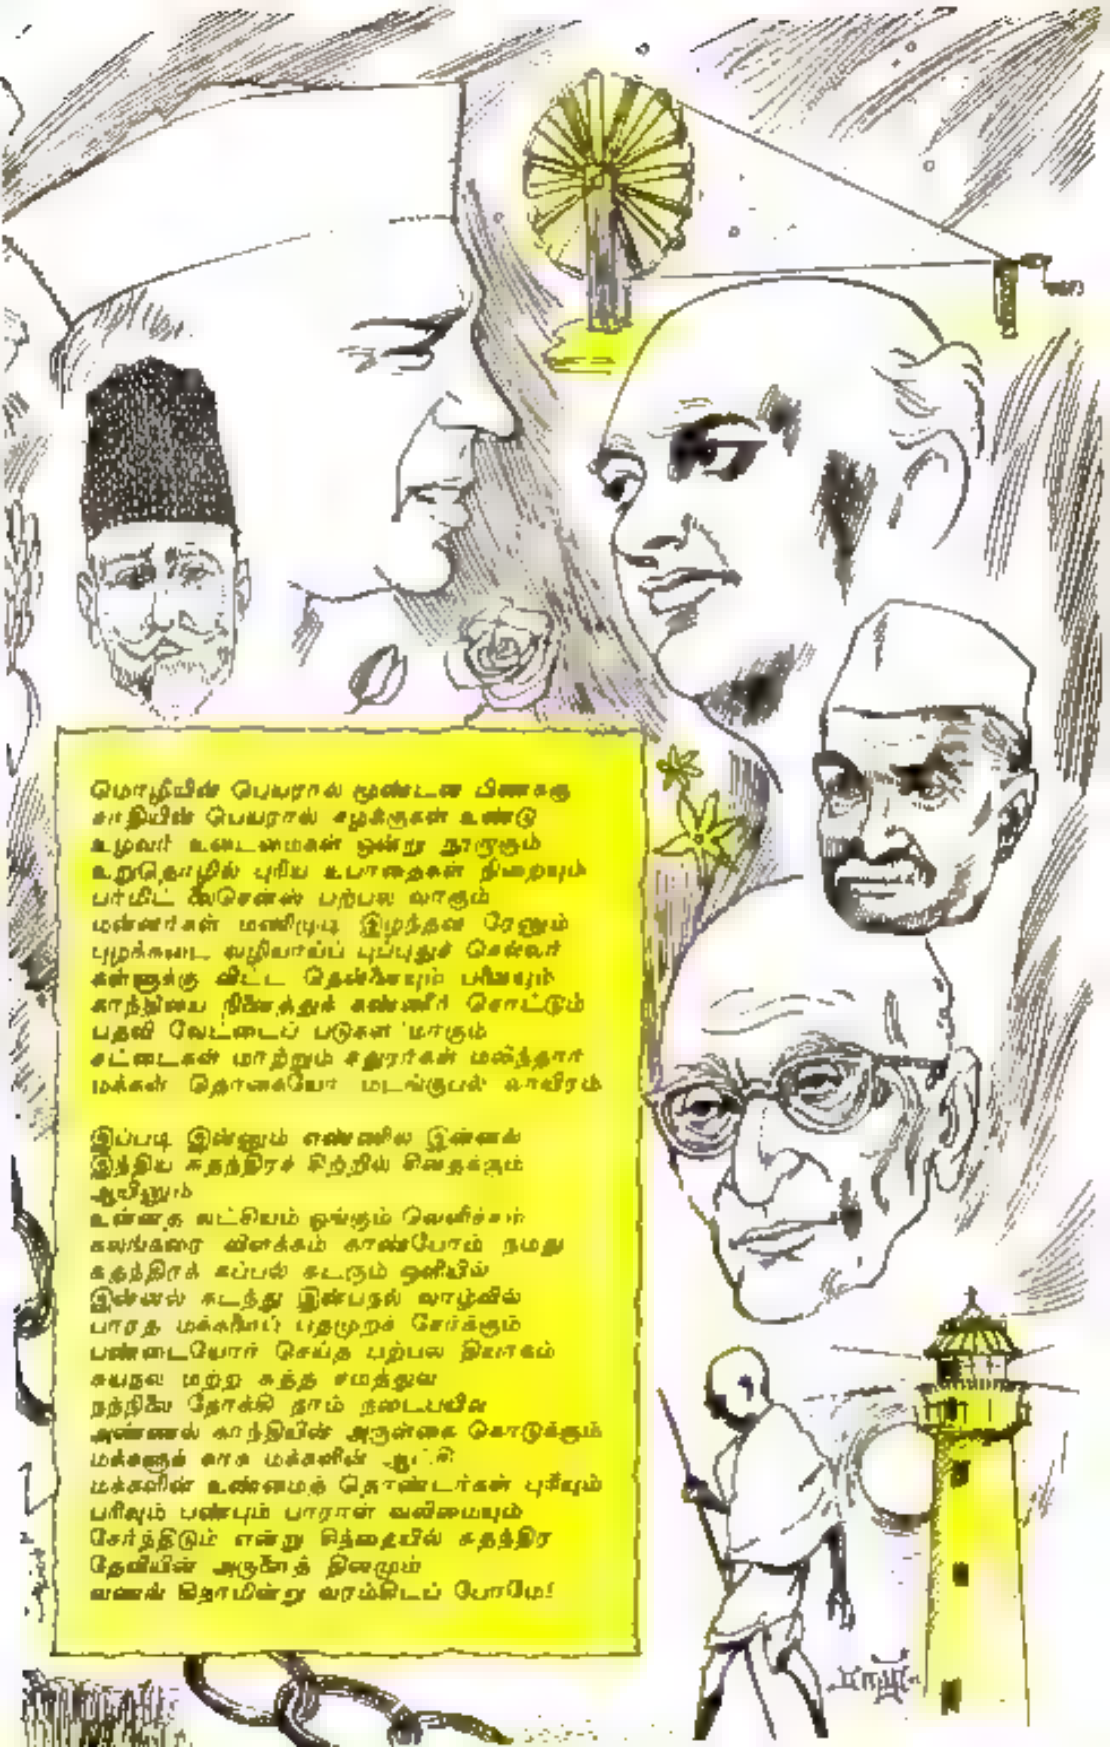 மொழியின் பெயரால் மூண்டன பிணக்கு
சாதியின் பெயரால் சழக்குகள் உண்டு
உழவர் உடைமைகள் ஒன்று நூறாகும்
உறுதொழில் புரிய உபாதைகள் நிறையும்
பர்மிட் லைசென்ஸ் பற்பல வாகும்
மன்னர்கள் மணிமுடி இழந்தன ரேனும்
புழக்கடை வழியாய்ப் புப்புதுச் செல்வர்
கள்ளுக்கு விட்ட தென்னையும் பனையும்
காந்தியை நினைத்துக் கண்ணீர் சொட்டும்
பதவி வேட்டைப் படுகள மாகும்
சட்டைகள் மாற்றும் சதுரர்கள் மலிந்தார்
மக்கள் தொகையோ மடங்குபல் லாயிரம்
இப்படி இன்னும் எண்ணில இன்னல்
இந்திய சுதந்திரச் சிற்றில் சிதைக்கும்
ஆயினும்
உன்னத லட்சியம் ஓங்கும் வெளிச்சம்
கலங்கரை விளக்கம் காண்போம் நமது
சுதந்திரக் கப்பல் சுடரும் ஒளியில்
இன்னல் கடந்து இன்பநல் வாழ்வில்
பாரத மக்களைப் பதமுறச் சேர்க்கும்
பண்டையோர் செய்த பற்பல தியாகம்
சுயநல மற்ற சுத்த சமத்துவ
நந்நிலை நோக்கி நாம் நடைபயில
அண்ணல் காந்தியின் அருள்கை கொடுக்கும்
மக்களுக் காக மக்களின் ஆட்சி
மக்களின் உண்மைத் தொண்டர்கள் புரியும்
பரிவும் பண்பும் பாராள் வலிமையும்
சேர்ந்திடும் என்று சிந்தையில் சுதந்திர
தேவியின் அருளைத் தினமும்
வணங்கி நாமின்று வரம்கிடப் போமே!